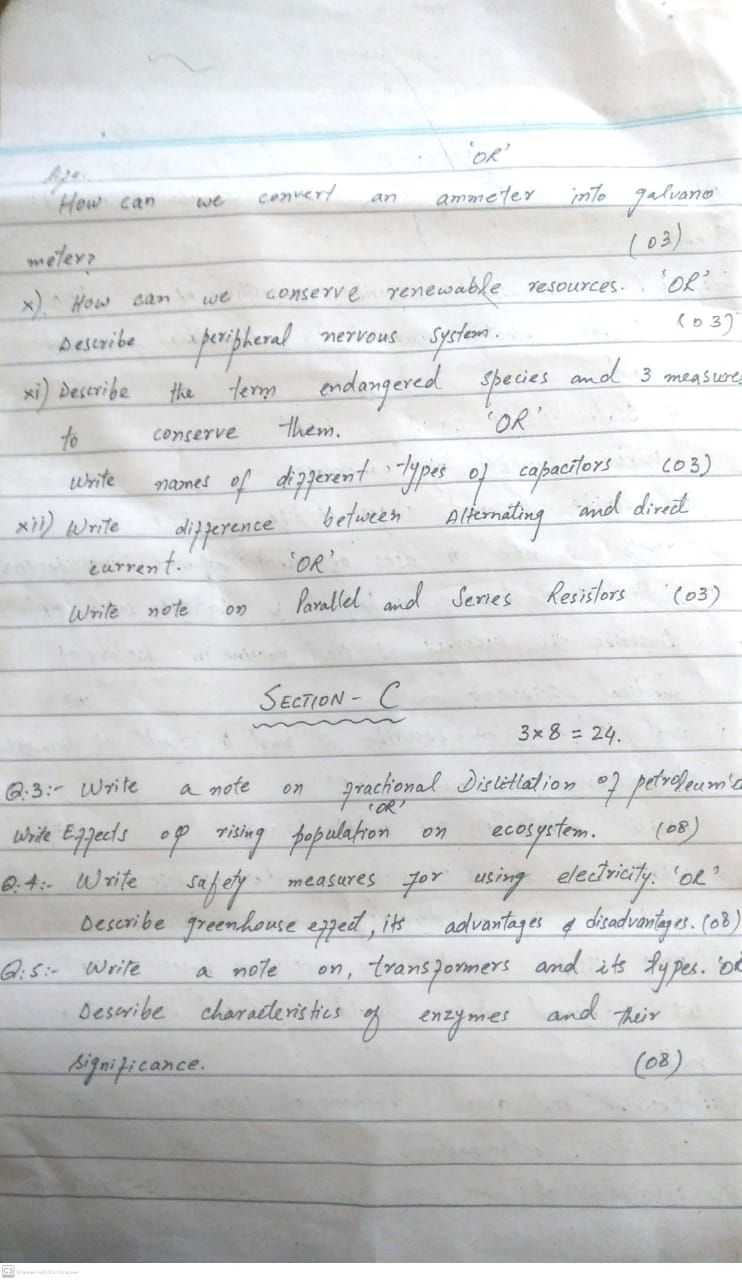 'OR'
How can we convert an ammeter into galvano
meter? (03)
x) How can we conserve renewable resources. 'OR'
Describe peripheral nervous system. (03)
xi) Describe the term endangered species and 3 measures
to conserve them. 'OR'
Write names of different types of capacitors (03)
xii) Write difference between Alternating and direct
current. 'OR'
Write note on Parallel and Series Resistors (03)
SECTION - C
3x8 = 24.
Q.3:- Write a note on fractional Distillation of petroleum.
'OR'
Write Effects of rising population on ecosystem. (08)
Q.4:- Write safety measures for using electricity. 'OR'
Describe greenhouse effect, its advantages & disadvantages. (08)
Q:5:- Write a note on, transformers and its types. 'OR
Describe characteristics of enzymes and their
significance. (08)
CS Scanned with CamScanner